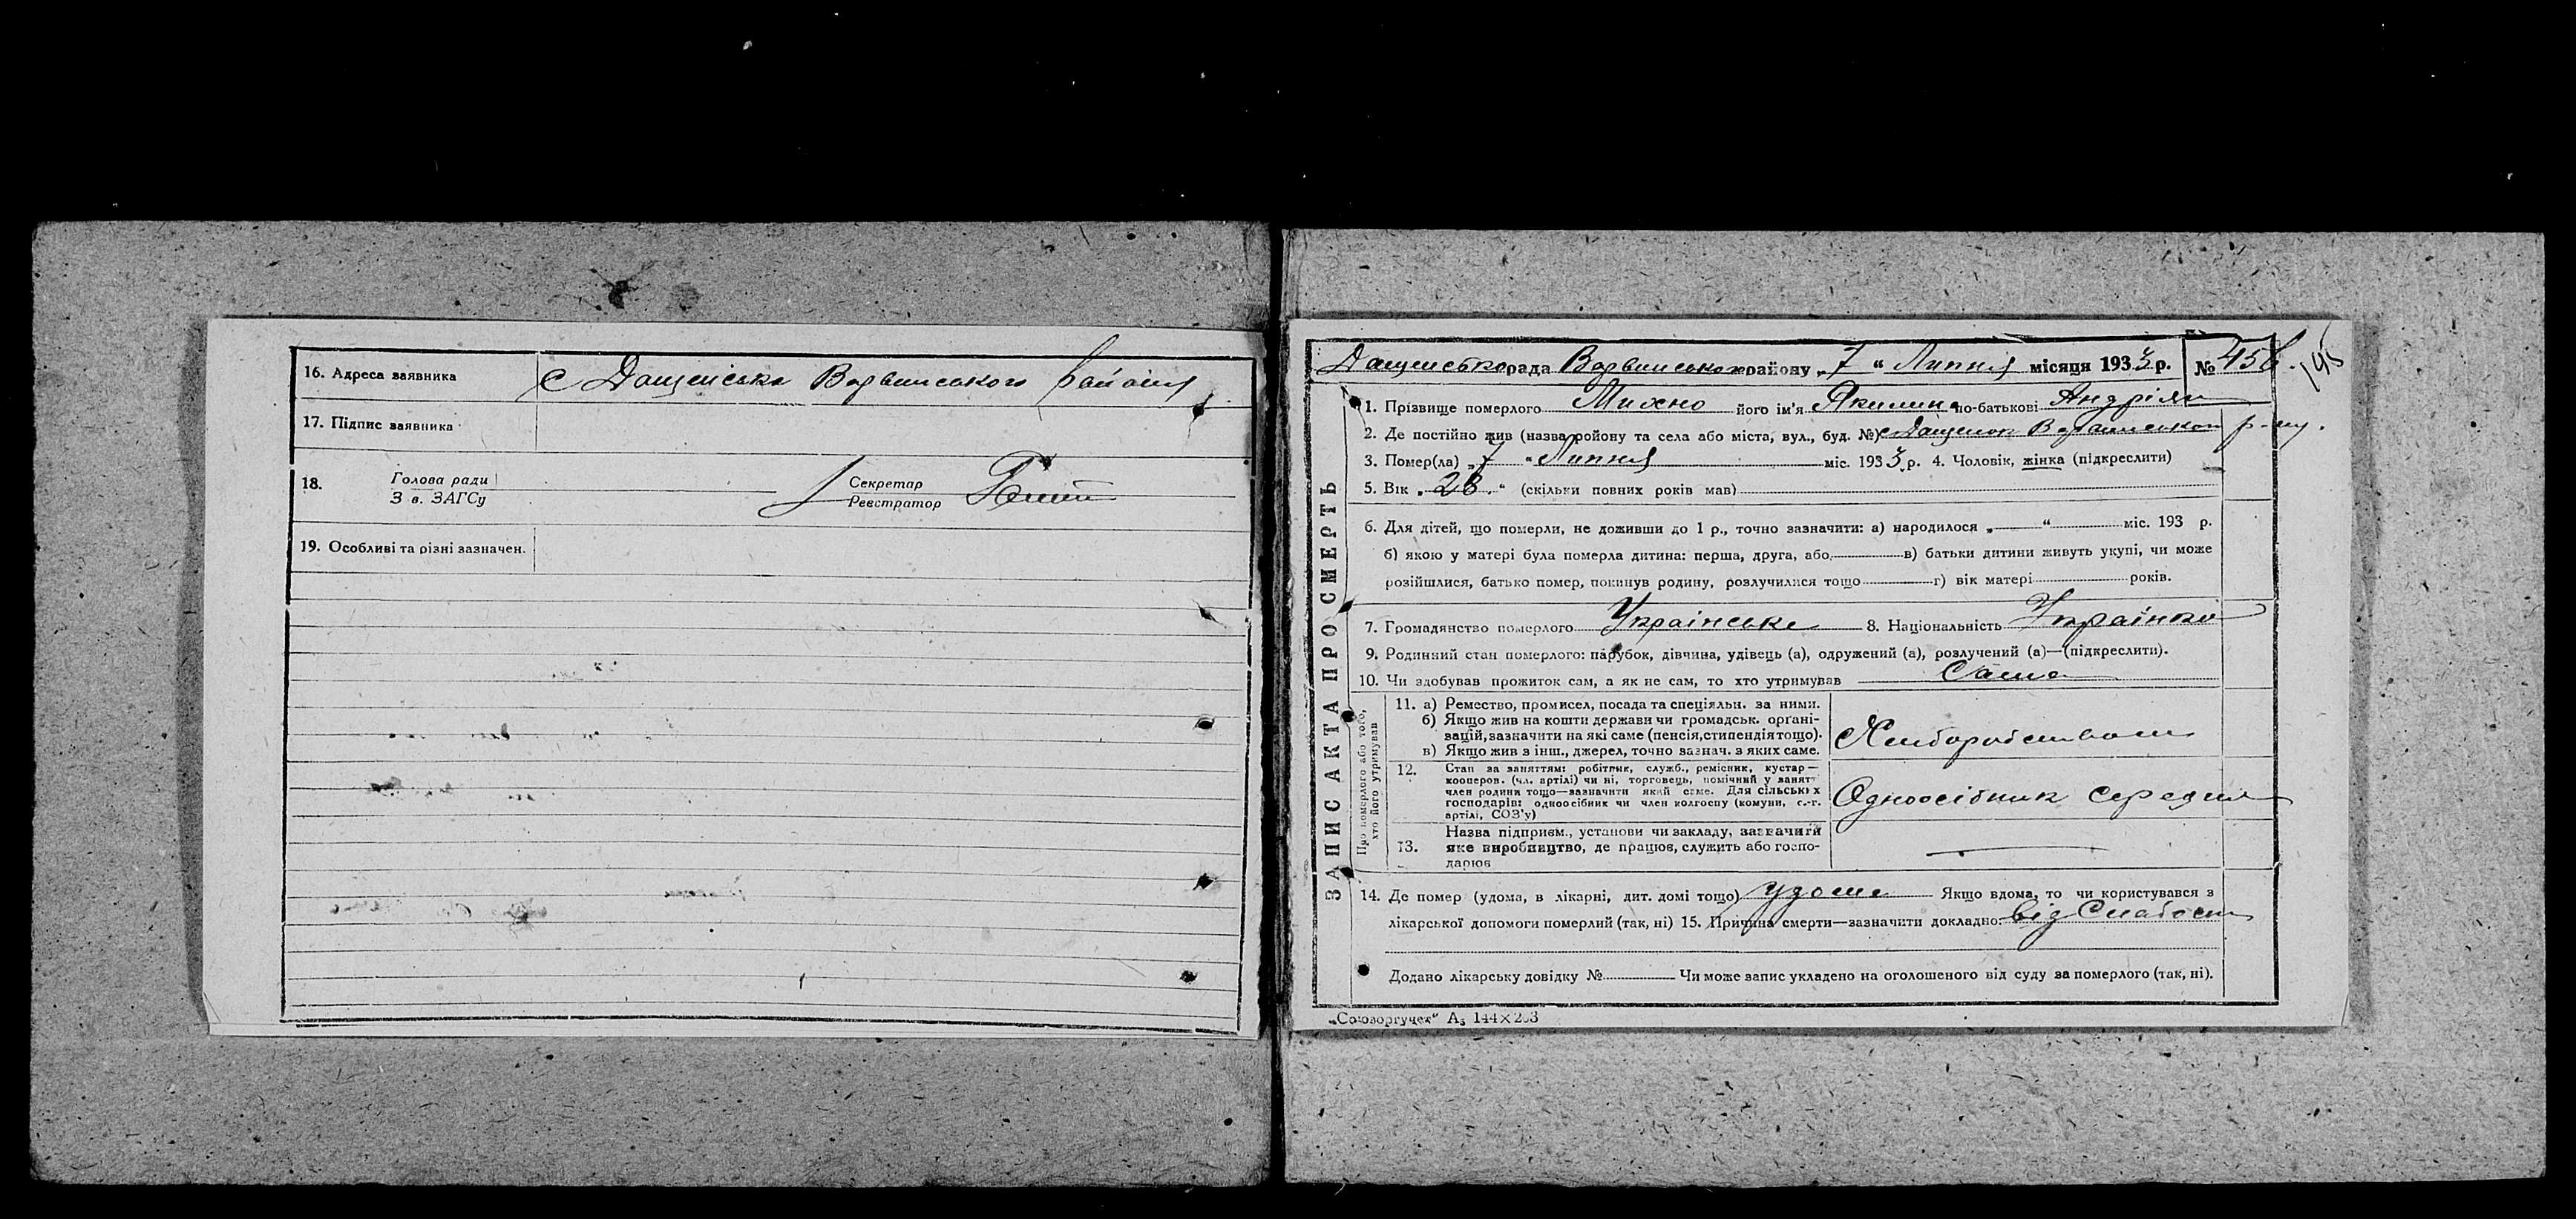 16. Адреса заявника с Дащенська Варвинського району
17. Підпис заявника
18. Голова ради
З в. ЗАГСу
Секретар
Реєстратор
19. Особливі та різні зазначен.
рада Варвинського району „7“ Липня місяця 1933 р. № 458.
195
ЗАПИС АКТА ПРО СМЕРТЬ
1. Прізвище померлого Михно його ім'я Якилина по-батькові Андріян
2. Де постійно жив (назва району та села або міста, вул., буд. №) с Дащенок Варвинського р-ну.
3. Помер(ла) „7“ Липня міс. 1933 р. 4. Чоловік, жінка (підкреслити)
5. Вік „28.“ (скільки повних років мав)
6. Для дітей, що померли, не доживши до 1 р., точно зазначити: а) народилося „ “ міс. 193 р.
б) якою у матері була померла дитина: перша, друга, або в) батьки дитини живуть укупі, чи може
розійшлися, батько помер, покинув родину, розлучилися тощо г) вік матері років.
7. Громадянство померлого Українське 8. Національність Українка
9. Родинний стан померлого: парубок, дівчина, удівець (а), одружений (а), розлучений (а)—(підкреслити).
10. Чи здобував прожиток сам, а як не сам, то хто утримував Сама
Про померлого або того,
хто його утримував
11. а) Ремество, промисел, посада та спеціяльн. за ними.
б) Якщо жив на кошти держави чи громадськ. орґані-
зацій, зазначити на які саме (пенсія, стипендія тощо).
в) Якщо жив з інш., джерел, точно зазнач. з яких саме.
Хліборобством
12. Стан за заняттям: робітник, служб., ремісник, кустар—
кооперов. (чл. артілі) чи ні, торговець, помічний у занятт
член родини тощо—зазначити який саме. Для сільських
господарів: одноосібник чи член колгоспу (комуни, с.-г.
артілі, СОЗ'у)
Одноосібник середняк
13. Назва підприєм., установи чи закладу, зазначити
яке виробництво, де працює, служить або госпо-
дарює
14. Де помер (удома, в лікарні, дит. домі тощо) удома Якщо вдома, то чи користувався з
лікарської допомоги померлий (так, ні) 15. Причина смерти—зазначити докладно: від Слабости
Додано лікарську довідку № Чи може запис укладено на оголошеного від суду за померлого (так, ні).
„Союзоргучет“ А₅ 144×203